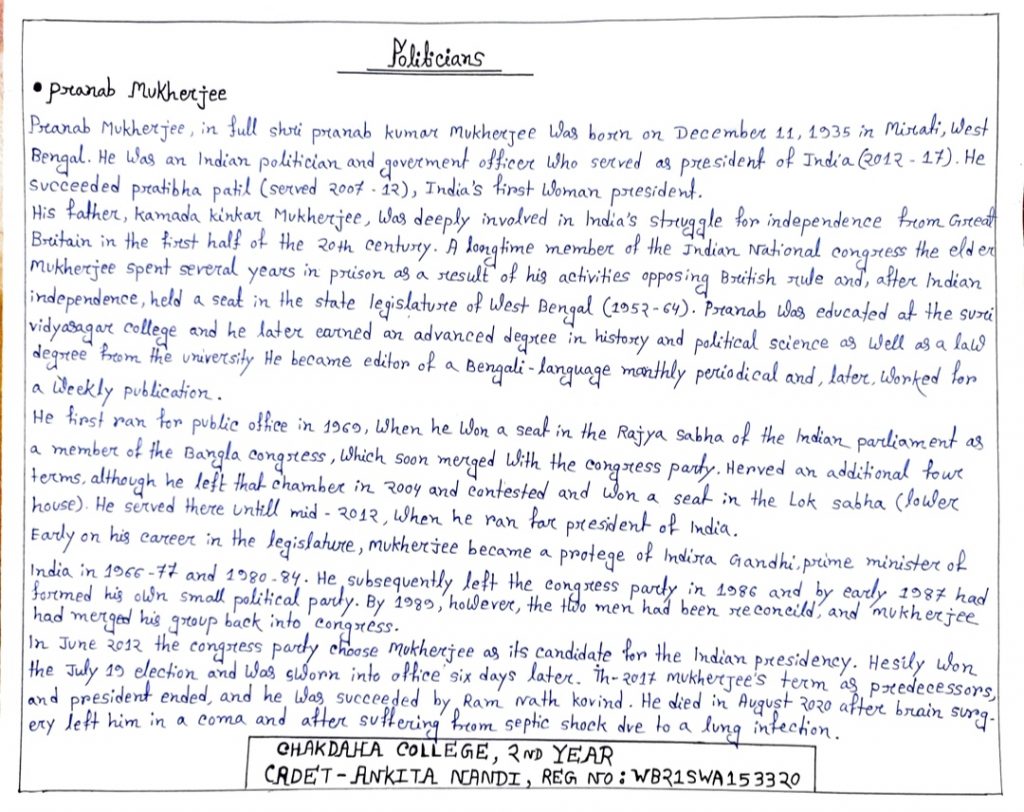 Politicians
• Pranab Mukherjee
Pranab Mukherjee, in full shri pranab kumar Mukherjee was born on December 11, 1935 in Mirati, West
Bengal. He was an Indian politician and goverment officer who served as president of India (2012 - 17). He
succeeded pratibha patil (served 2007 - 12), India's first woman president.
His father, kamada kinkar Mukherjee, was deeply involved in India's struggle for independence from Great
Britain in the first half of the 20th century. A longtime member of the Indian National congress the elder
Mukherjee spent several years in prison as a result of his activities opposing British rule and, after Indian
independence, held a seat in the state legislature of West Bengal (1952-64). Pranab was educated at the suri
vidyasagar college and he later earned an advanced degree in history and political science as well as a law
degree from the university He became editor of a Bengali-language monthly periodical and, later, worked for
a weekly publication.
He first ran for public office in 1969, when he won a seat in the Rajya sabha of the Indian parliament as
a member of the Bangla congress, which soon merged with the congress party. Herved an additional four
terms, although he left that chamber in 2004 and contested and won a seat in the Lok sabha (lower
house). He served there untill mid - 2012, when he ran for president of India.
Early on his career in the legislature, mukherjee became a protege of Indira Gandhi, prime minister of
India in 1966-77 and 1980-84. He subsequently left the congress party in 1986 and by early 1987 had
formed his own small political party. By 1989, however, the two men had been reconcild, and mukherjee
had merged his group back into congress.
In June 2012 the congress party choose Mukherjee as its candidate for the Indian presidency. Hesily won
the July 19 election and was sworn into office six days later. Th-2017 mukherjee's term as predecessors,
and president ended, and he was succeeded by Ram Nath kovind. He died in August 2020 after brain surg-
ery left him in a coma and after suffering from septic shock due to a lung infection.
CHAKDAHA COLLEGE, 2ND YEAR
CADET - ANKITA NANDI, REG NO : WB21SWA153320